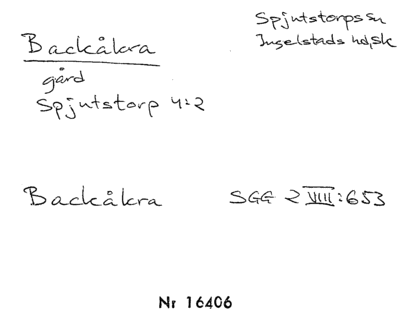 Spjutstorps sn
Ingelstads hd, Sk
Backåkra
gård
Spjutstorp 4:2
Backåkra SGG 2 VIII:653
Nr 16406